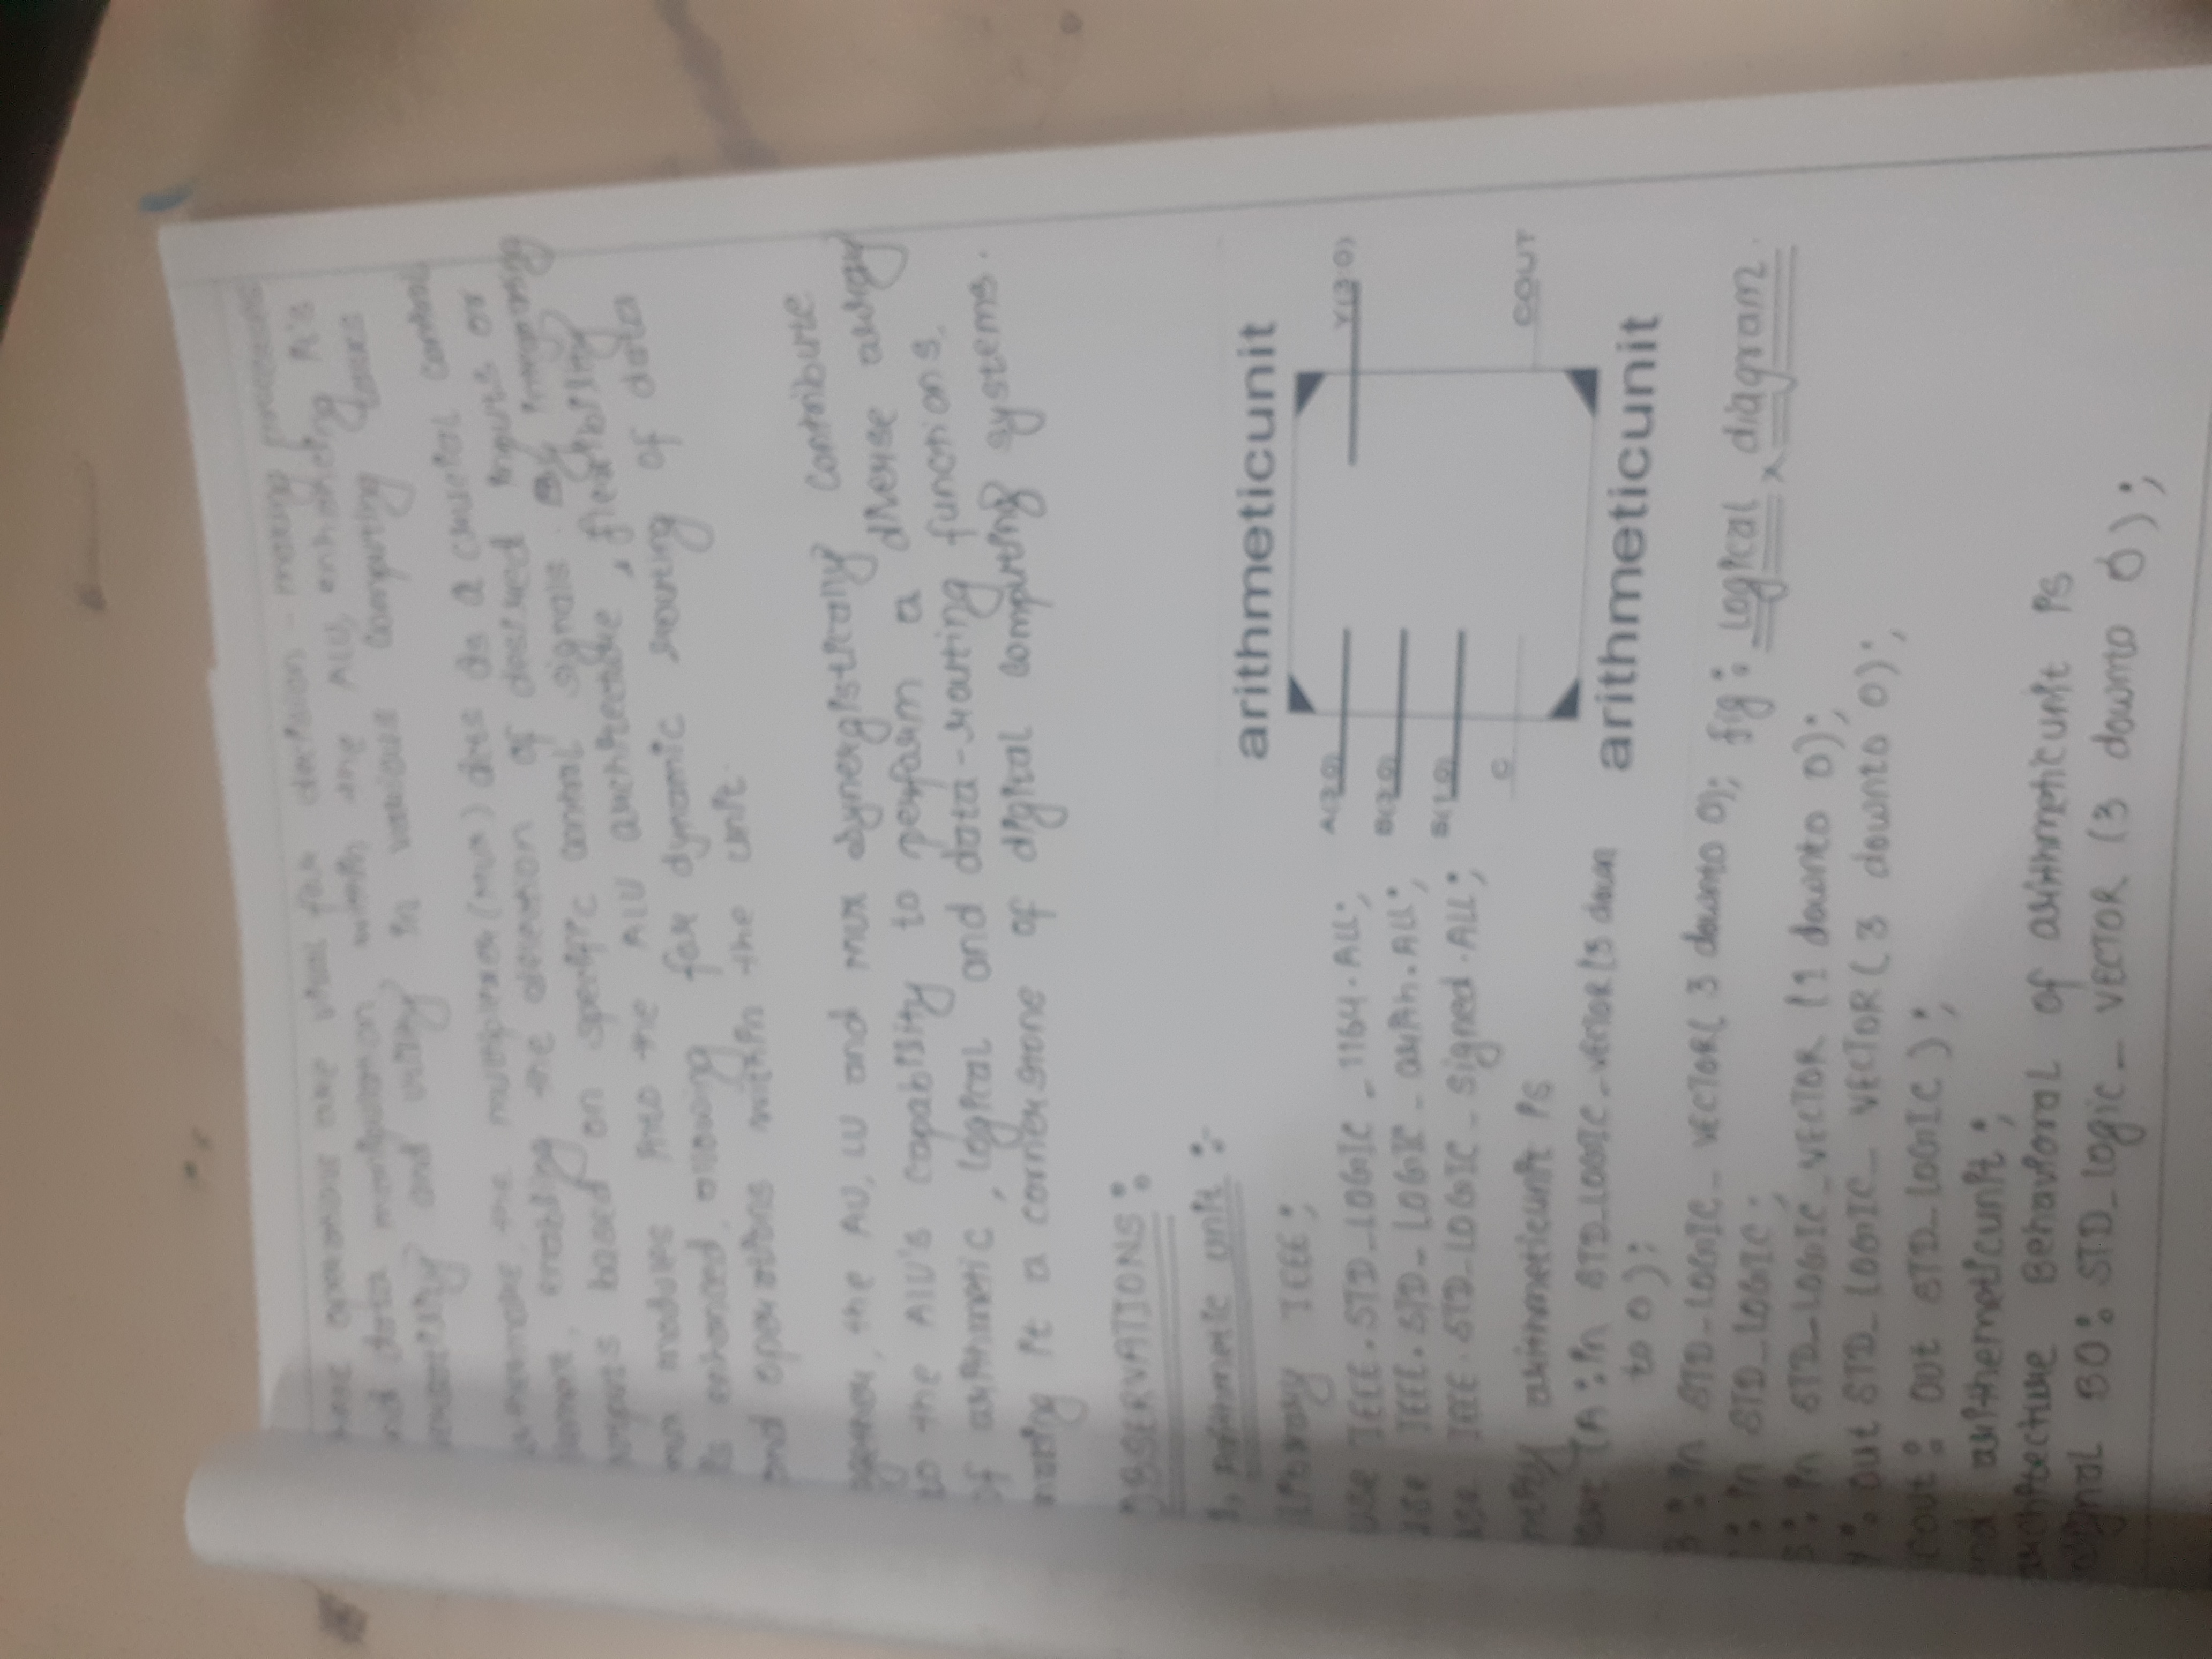 operations are vital for decision - making processes
nd data manipulation within the ALU, enhancing it's
versatility and utility in various computing tasks
the multiplexer (mux) acts as a crucial control
element, enabling the selection of desired inputs or
outputs based on specific control signals. By integrating
mux modules into the ALU architecture, flexibility
is enhanced, allowing for dynamic routing of data
and operations within the unit.
ogether, the AU, LU and mux synergistically contribute
to the ALU's capability to perform a diverse array
of arithmetic, logical and data-routing functions,
making it a cornerstone of digital computing systems.
OBSERVATIONS :
1. Arithmetic unit :-
library IEEE;
use IEEE.STD_LOGIC_1164.ALL;
use IEEE.STD_LOGIC_arith.ALL;
use IEEE.STD_LOGIC_signed.ALL;
ntity arithmeticunit is
port (A : in STD_LOGIC_VECTOR(3 down
to 0);
B : in STD_LOGIC_VECTOR( 3 downto 0);
: in STD_LOGIC;
S : in STD_LOGIC_VECTOR (1 downto 0);
Y : out STD_LOGIC_VECTOR (3 downto 0);
cout : out STD_LOGIC );
nd arithemeticunit;
architecture Behavioral of arithmeticunit is
signal B0 : STD_logic_VECTOR (3 downto 0);
arithmeticunit
A(3:0)
B(3:0)
S(1:0)
C
Y(3:0)
COUT
arithmeticunit
fig : logical diagram.